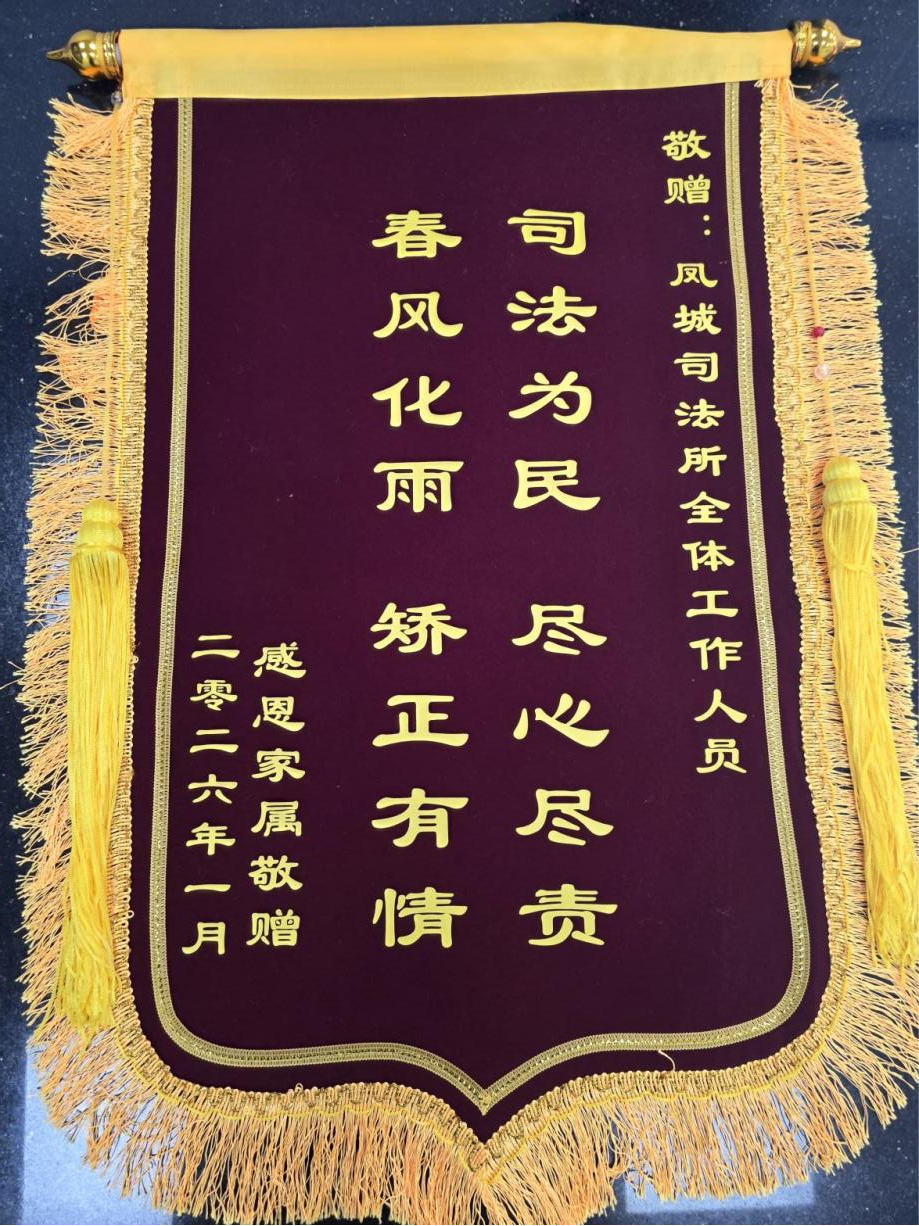 敬赠：凤城司法所全体工作人员
司法为民 尽心尽责
春风化雨 矫正有情
感恩家属敬赠
二零二六年一月